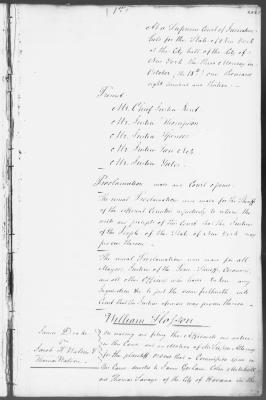 At a Supreme Court of Judica
ture for the State of New York
at the City Hall of the City of
New York the third Monday in
October, the 18th, one thousand
eight hundred and thirteen
Present
Mr. Chief Justice Kent
Mr. Justice Thompson
Mr. Justice Spencer
Mr. Justice Van Ness
Mr. Justice Yates
Proclamation was made and Court opened.
The usual Proclamation was made for the Sheriffs
of the different Counties to return the
writs and precepts of this Court that the Justices
of the People of the State of New York may
proceed thereon
The usual Proclamation was made for all
Mayors, Justices of the Peace, Sheriffs, Coroners,
and all other Officers who have taken any
Inquisitions &c to put the same forthwith into
Court that the Justices aforesaid may proceed thereon
William Slosson
James Drake
vs
Jacob H Walden &
Thomas Walden
On reading and filing the Affidavits and notice
in this Cause and on motion of Attorney
for the plaintiff ordered that a Commission issue in
this Cause directed to James Colman John
and Thomas Savage of the City of Havana in the